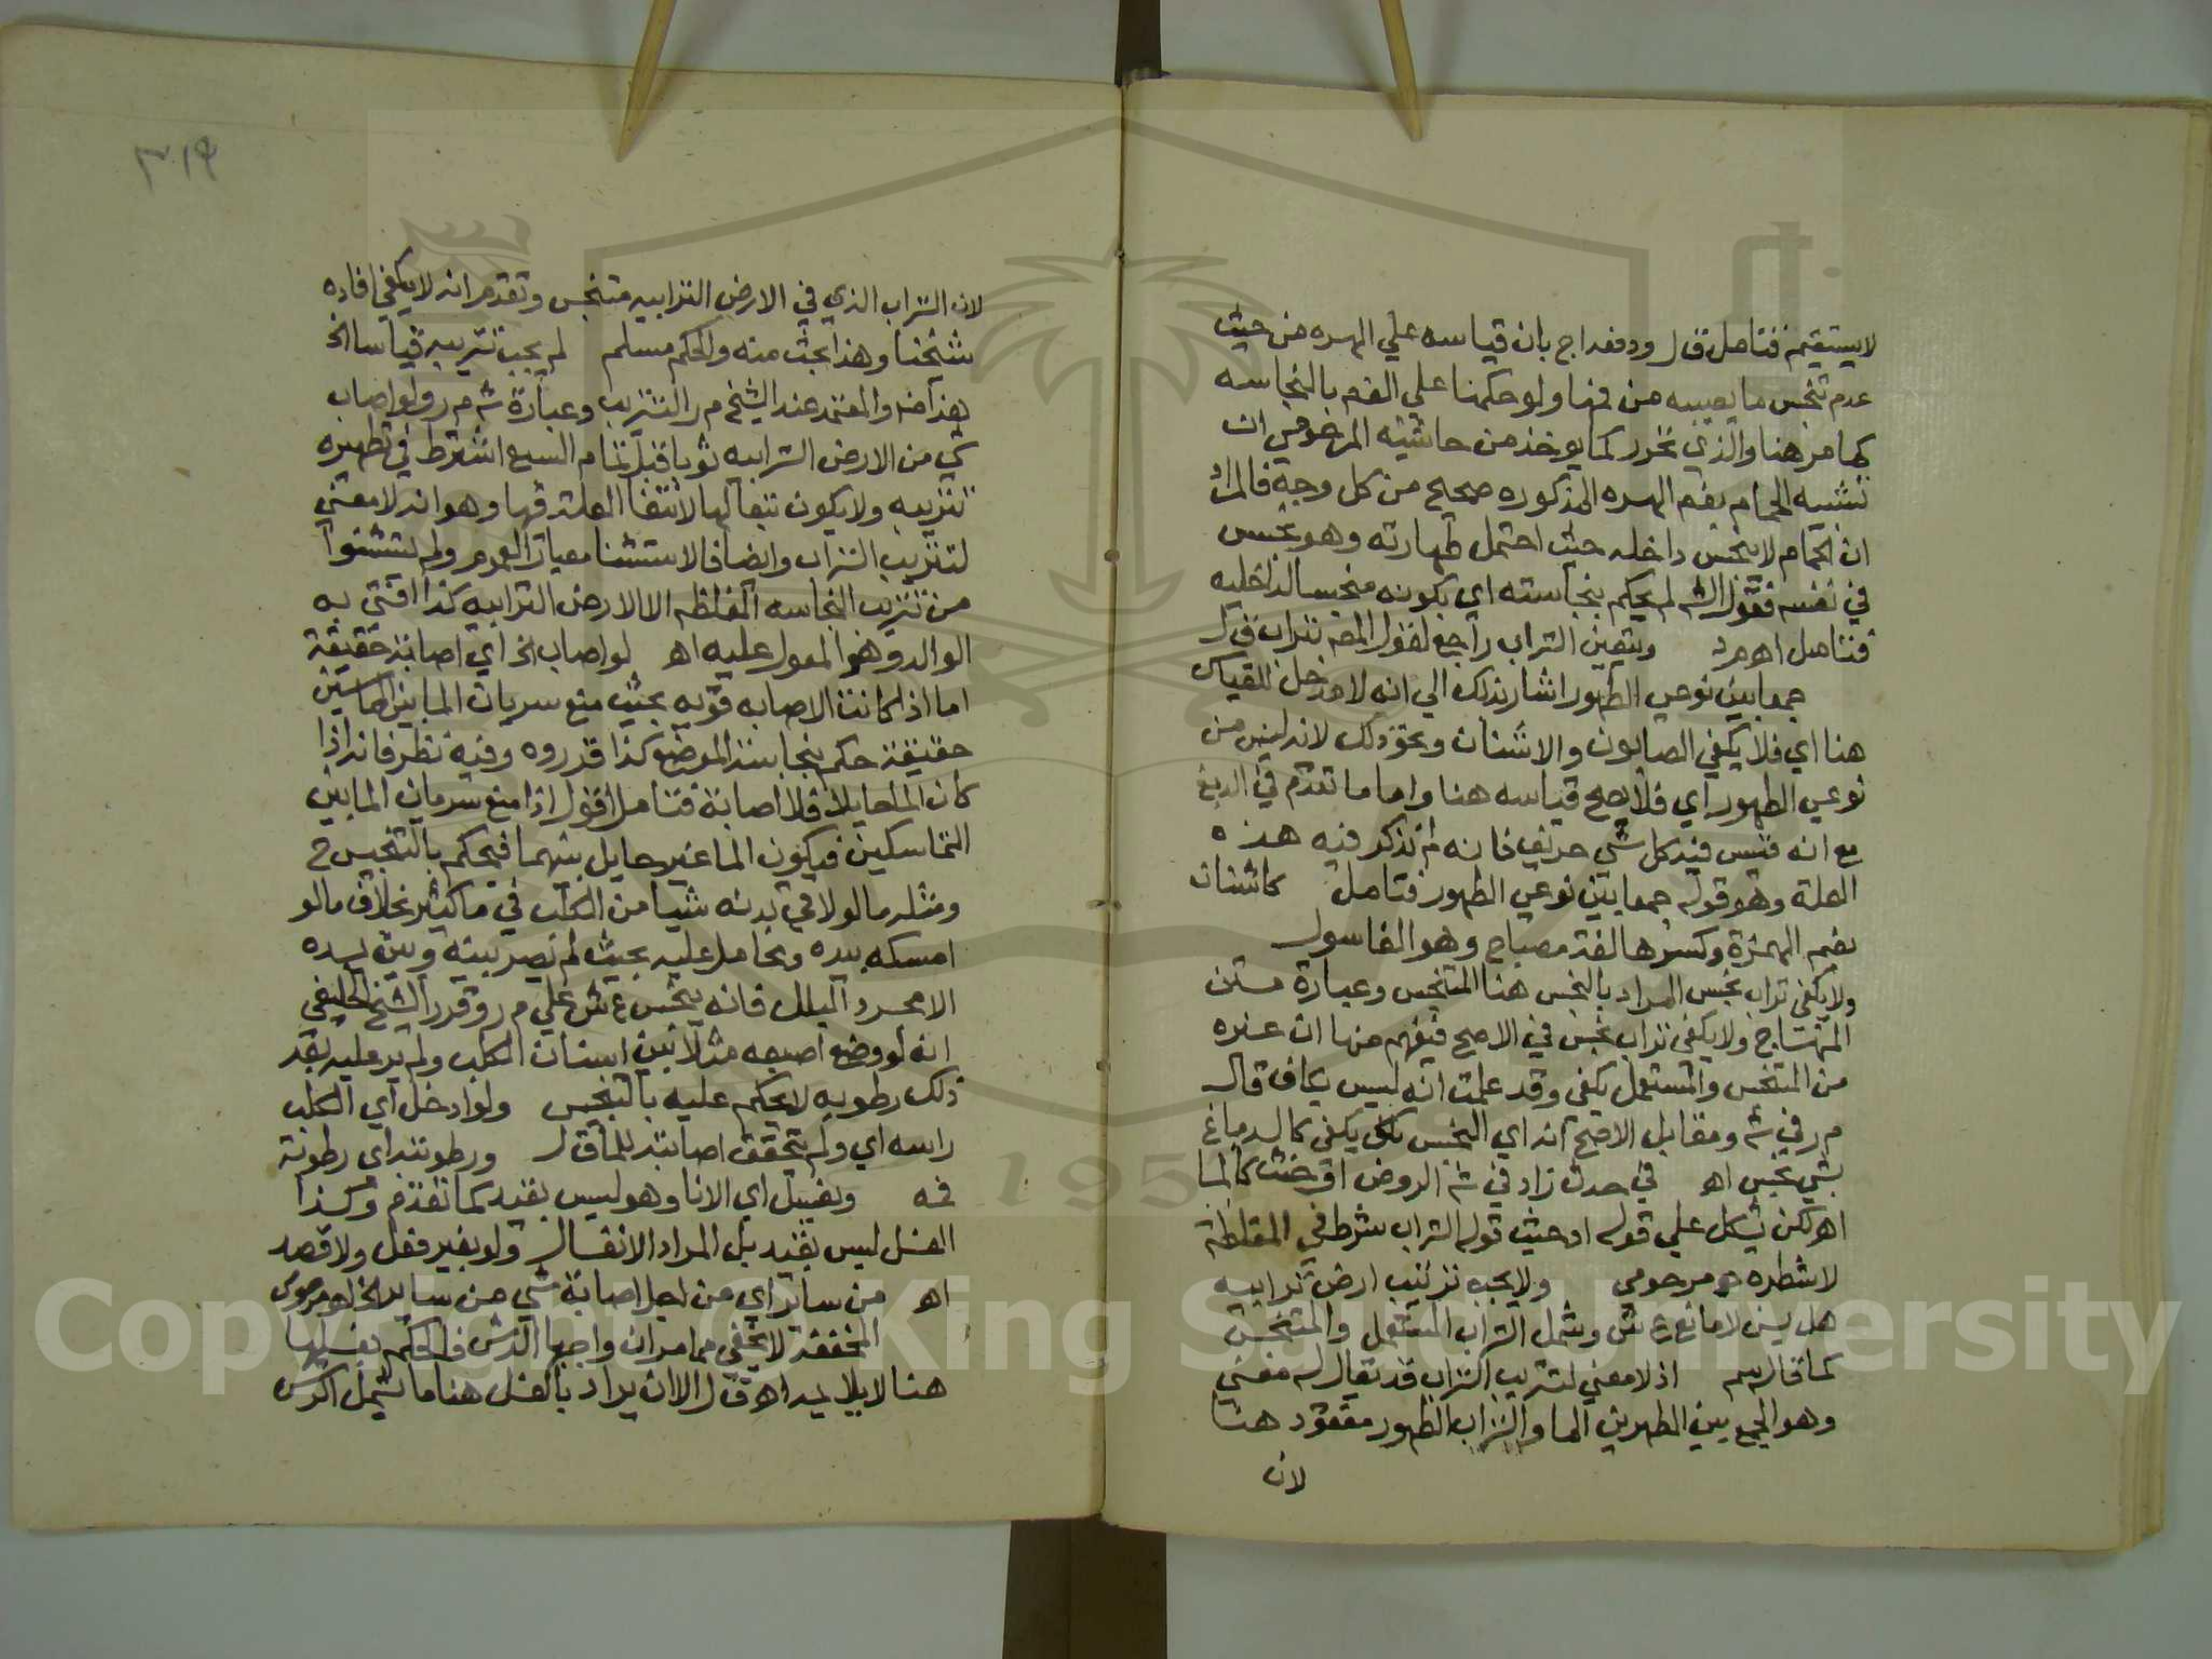 لا يستقيم فتامل ق ل ودفعه اج بان قياسه علي الهره من حيث
عدم تنجس ما يصيبه من فمها ولو حكمنا علي الفم بالنجاسه
كما مر هنا والذي تحرر كما يوخذ من حاشيته المرحومي ان
تشبيه الحمام بفم الهره المذكوره صحيح من كل وجه فالمراد
ان الحمام لا ينجس داخله حيث احتمل طهارته وهو نجس
في نفسه فقول الش لم يحكم بنجاسته اي بكونه منجسا لداخليه
فتامل اهـ م د ويتعين التراب راجع لقول المص بتراب ق ل
جمعا بين نوعي الطهور اشار بذلك الي انه لا مدخل للقياس
هنا اي فلا يكفي الصابون والاشنان ونحو ذلك لانه ليس من
نوعي الطهور اي فلا يصح قياسه هنا واما ما تقدم في الدبغ
مع انه قيس فيه كل شي حريف فانه لم تذكر فيه هذه
العلة وهو قوله جمعا بين نوعي الطهور فتامل كاشنان
بضم الهمزة وكسرها لغة مصباح وهو الغاسول
ولا يكفي تراب نجس المراد بالنجس هنا المتنجس وعبارة متن
المنهاج ولا يكفي تراب نجس في الاصح فيفهم منها ان غيره
من المتنجس والمستعمل يكفي وقد علمت انه ليس بكاف قال
م ر في ش ومقابل الاصح انه اي النجس يكفي كالدباغ
بشي نجس اهـ في حدث زاد في ش الروض او خبث كالما
اهـ لكن يشكل علي قوله او خبث قوله التراب شرط في المغلظة
لا شطر مرحومي ولا يجب تتريب ارض ترابيه
هل يسن لا مانع ع ش وشمل التراب المستعمل والمتنجس
كما قاله سم اذ لا معني لتتريب التراب قد يقال له معني
وهو الجمع بين الطهرين الما والتراب الطهور مفقود هنا
لان
٣١٩
لان التراب الذي في الارض الترابيه متنجس وتقدم انه لا يكفي افاده
شيخنا وهذا بحث منه والحكم مسلم لم يجب تتريبه قياسا الخ
هذا ضعيف والمعتمد عند الشيخ م ر التتريب وعبارة ش م ر ولو اصاب
شي من الارض الترابيه ثوبا قبل تمام السبع اشترط في تطهيره
تتريبه ولا يكون تبعا لها لانتفا العلة فيها وهو انه لا معني
لتتريب التراب وايضا فالاستثنا معيار العموم ولم يستثنوا
من تتريب النجاسه المغلظه الا الارض الترابيه كذا افتي به
الوالد وهو المعول عليه اهـ لو اصاب الخ اي اصابة حقيقة
اما اذا كانت الاصابه قويه بحيث منع سريان الما بين المماسين
حقيقة حكم بنجاسة الموضع كذا قرروه وفيه نظر فانه اذا
كان الما حايلا فلا اصابة فتامل اقول اذا منع سريان الما بين
المتماسكين فيكون الما غير حايل بينهما فيحكم بالتنجيس ح
ومثله ما لو لاقي بدنه شيا من الكلب في ما كثير بخلاف ما لو
امسكه بيده وتحامل عليه بحيث لم يصر بينه وبين يده
الا مجرد البلل فانه ينجس ع ش علي م ر وقرر الشيخ الحليفي
انه لو وضع اصبعه مثلا بين اسنان الكلب ولم ير عليه بعد
ذلك رطوبه لا يحكم عليه بالتنجيس ولو ادخل اي الكلب
راسه اي ولم يتحقق اصابته للما ق ل ورطوبته اي رطوبة
فمه وبغسل اي الانا وهو ليس بقيد كما تقدم وكذا
الغسل ليس بقيد بل المراد الانغسال ولو بغير فعل ولا قصد
اهـ من ساير اي من اجل اصابة شي من ساير الخ اهـ مرحومي
المخففة لا يخفي مما مر ان واجبها الرش فالحكم بغسلها
هنا لا يلايمه اهـ ق ل الا ان يراد بالغسل هنا ما يشمل الرش